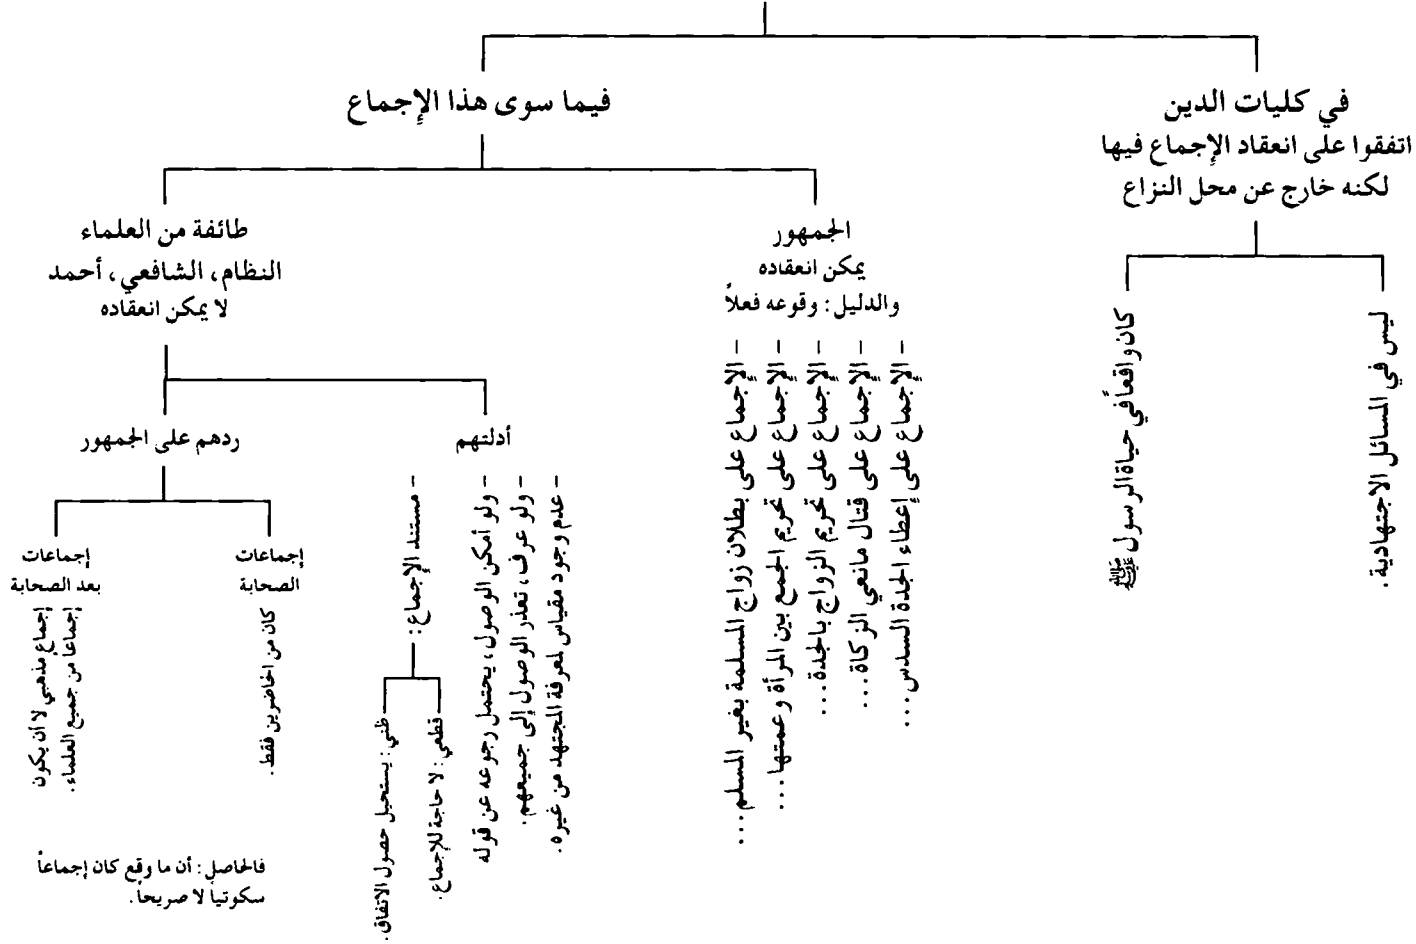 في كليات الدين
اتفقوا على انعقاد الإجماع فيها
لكنه خارج عن محل النزاع
ليس في المسائل الاجتهادية.
كان واقعاً في حياة الرسول ﷺ
فيما سوى هذا الإجماع
الجمهور
يمكن انعقاده
والدليل: وقوعه فعلاً
- الإجماع على إعطاء الجدة السدس...
- الإجماع على قتال مانعي الزكاة...
- الإجماع على تحريم الزواج بالجدة...
- الإجماع على تحريم الجمع بين المرأة وعمتها...
- الإجماع على بطلان زواج المسلمة بغير المسلم...
طائفة من العلماء
النظام، الشافعي، أحمد
لا يمكن انعقاده
أدلتهم
- عدم وجود مقياس لمعرفة المجتهد من غيره.
- ولو عرف، تعذر الوصول إلى جميعهم.
- ولو أمكن الوصول، يحتمل رجوعه عن قوله
- مستند الإجماع:
قطعي: لا حاجة للإجماع.
ظني: يستحيل حصول الاتفاق.
ردهم على الجمهور
إجماعات
الصحابة
كان من الحاضرين فقط.
إجماعات
بعد الصحابة
إجماعاً من جميع العلماء.
إجماع مذهبي لا ان يكون
فالحاصل: أن ما وقع كان إجماعاً
سكوتياً لا صريحاً.